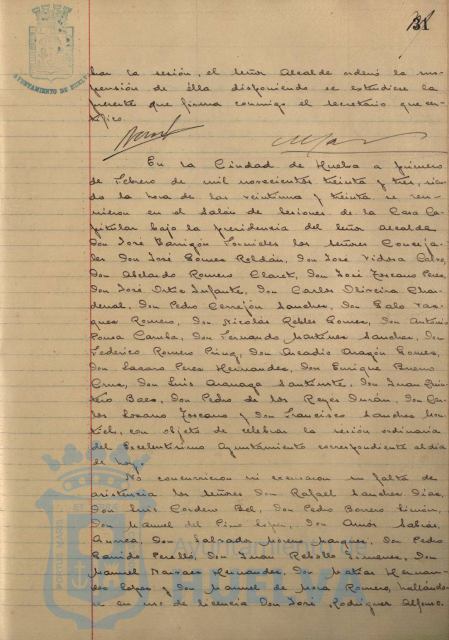 31
AYUNTAMIENTO DE HUELVA
bar la sesión, el señor Alcalde ordenó la sus-
pensión de ella disponiendo se extendiese la
presente que firma conmigo el secretario que cer-
tifico.
En la Ciudad de Huelva a primero
de Febrero de mil novecientos treinta y tres, sien-
do la hora de las veintiuna y treinta, se reu-
nieron en el Salón de Sesiones de la Casa Ca-
pitular bajo la presidencia del señor Alcalde
don José Barrigón Fornieles los señores Conceja-
les don José Gomez Roldán, don José Vidosa Calvo,
don Abelardo Romero Claret, don José Toscano Perez,
don José Ortiz Infante, don Carlos Oliveira Cha-
denal, don Pedro Cerrejón Sanchez, don Galo Vaz-
quez Romero, don Nicolás Robles Gomez, don Antonio
Ponce don Fernando Martinez Sanchez, don
Federico Romero don Arcadio Aragón Gomez,
don Lazaro Perez Hernandez, don Enrique Bueno
Cruz, don Luis don Juan Quin-
tero Baez, don Pedro de los Reyes Durán, don Car-
los Lozano Toscano y don Francisco Sanchez
con objeto de celebrar la sesión ordinaria
del Excelentísimo Ayuntamiento correspondiente al dia
de hoy.
No concurrieron ni excusaron su falta de
asistencia los señores don Rafael Sanchez Diaz,
don Luis Cordero Bel, don Pedro Borrero Limón,
don Manuel del Pino Lopez, don Amós Sabrás
Gurrea, don Salvador Moreno Marquez, don Pedro
Garrido Perelló, don Juan Rebollo Jimenez, don
Manuel Narvaez Hernandez, don Matías Hernan-
dez y don Manuel de Mora Romero, hallándo-
se en uso de licencia don José Rodriguez Alfonso.
Ayuntamiento de
HUELVA